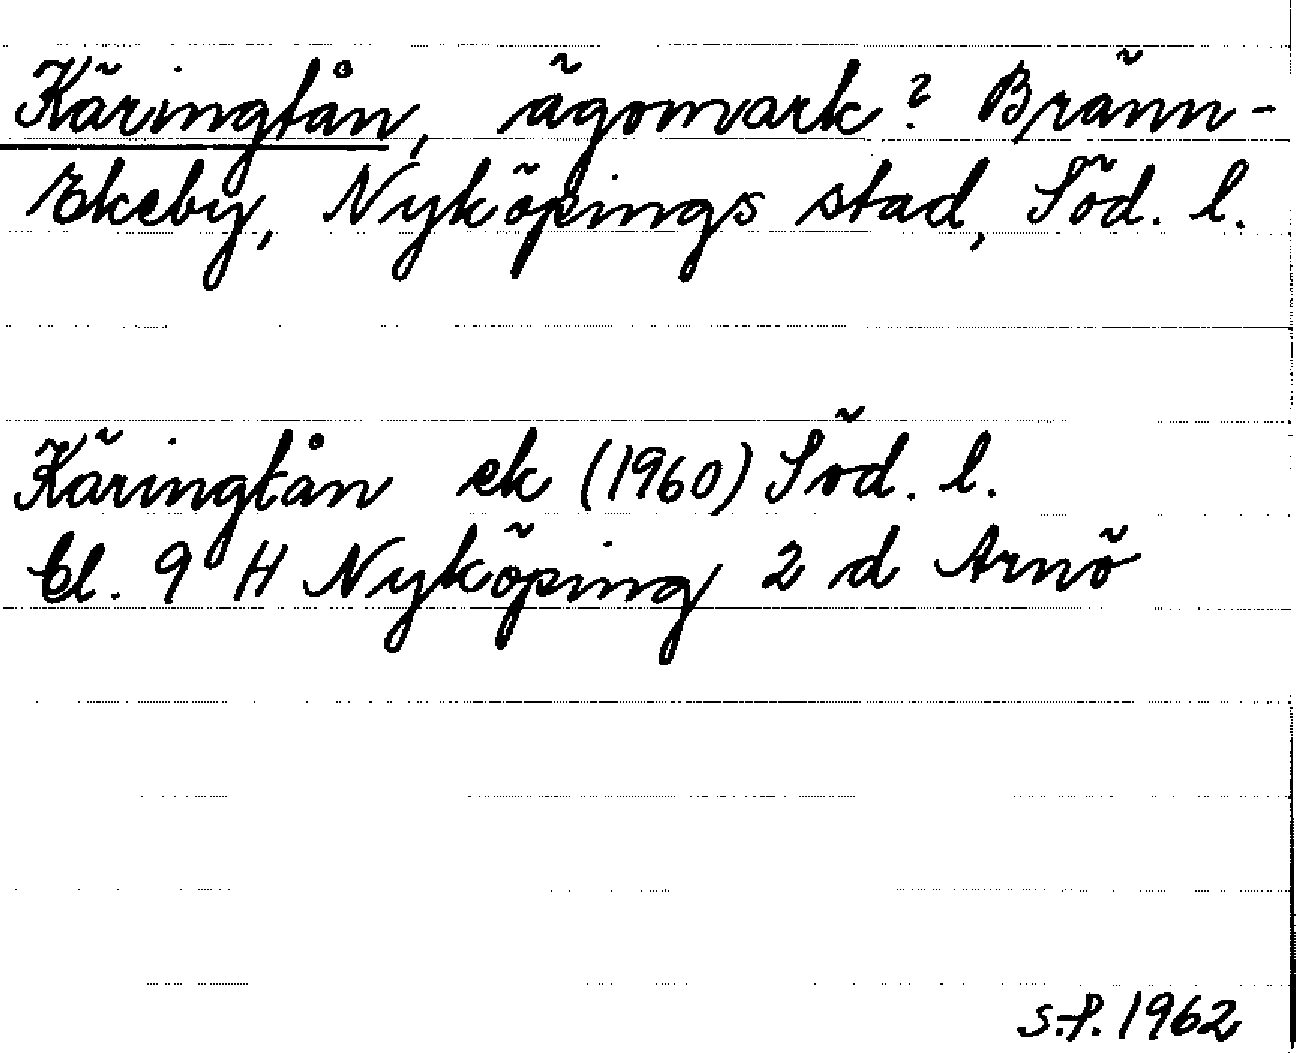 Käringtån, ägomark? Bränn-
Ekeby, Nyköpings stad, Söd. l.
Käringtån ek (1960) Söd. l.
Bl. 9 H Nyköping 2 d Arnö
S.P. 1962